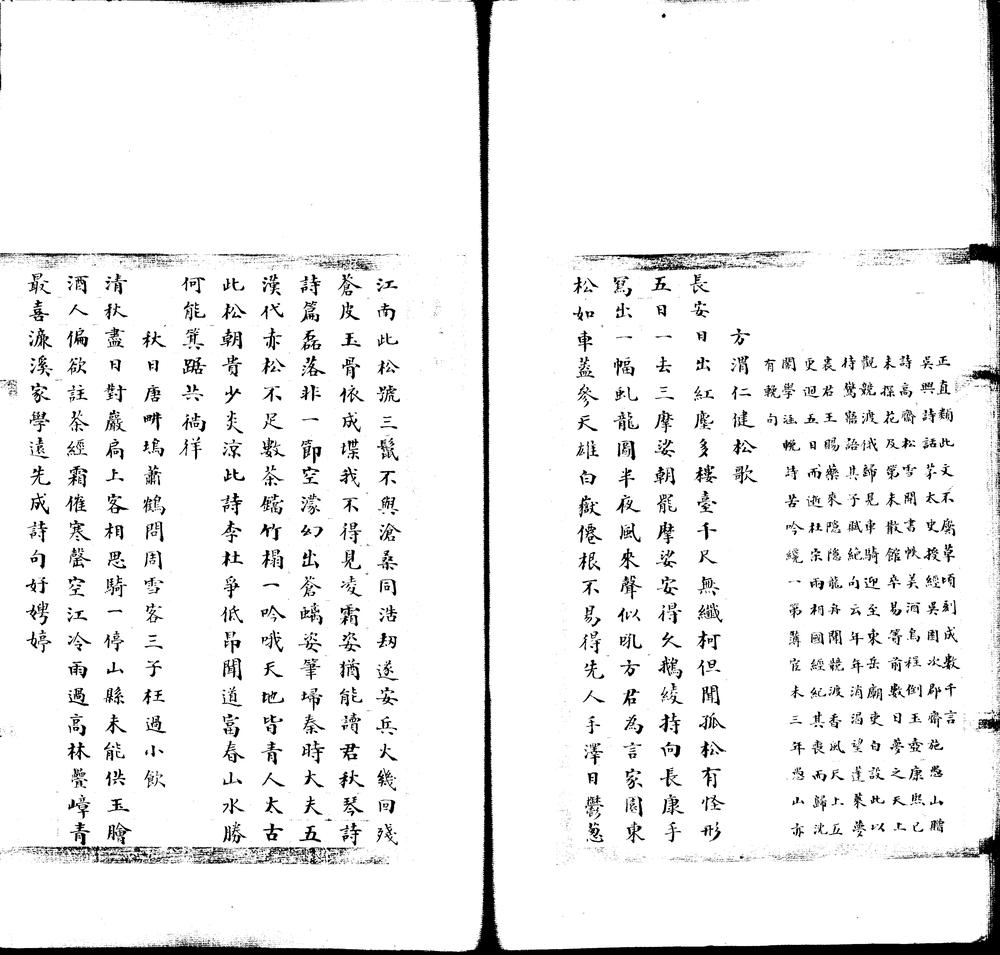 正直類此文不腐草頃刻成數千言
吳興詩話茅太史授經吳園次郡齋施愚山贈
詩高齋松雪閒書帙美酒烏程倒玉壺康熙己
未探花及第未散館卒易簀前數日夢之天上
觀競渡俄歸見車騎迎至東岳廟吏白設此以
待驚寤語其子賦絶句云年年消渴望蓬萊夢
裏君王賜藥來隱隱龍舟聞競渡香風天上五
更迴五日而逝杜宗雨相國經紀其喪而歸沈
閣學涵輓詩苦吟纔一第薄宦未三年愚山亦
有輓句
方渭仁健松歌
長安日出紅塵多樓臺千尺無纖柯但聞孤松有怪形
五日一去三摩娑朝罷摩娑安得久鵝綾持向長康手
寫出一幅虬龍圖半夜風來聲似吼方君為言家園東
松如車蓋參天雄白嶽僊根不易得先人手澤日鬱葱
江南此松號三鬣不與滄桑同浩刼遂安兵火幾回殘
蒼皮玉骨依成堞我不得見凌霜姿猶能讀君秋琴詩
詩篇磊落非一節空濛幻出蒼螭姿筆埽秦時大夫五
漢代赤松不足數茶鐺竹榻一吟哦天地皆青人太古
此松朝貴少炎涼此詩李杜爭低昂聞道富春山水勝
何能箕踞共徜徉
秋日唐畊塢蕭鶴問周雪客三子枉過小飲
清秋盡日對巖扃上客相思騎一停山縣未能供玉膾
酒人偏欲註茶經霜催寒磬空江冷雨過高林疊嶂青
最喜濂溪家學遠先成詩句好娉婷